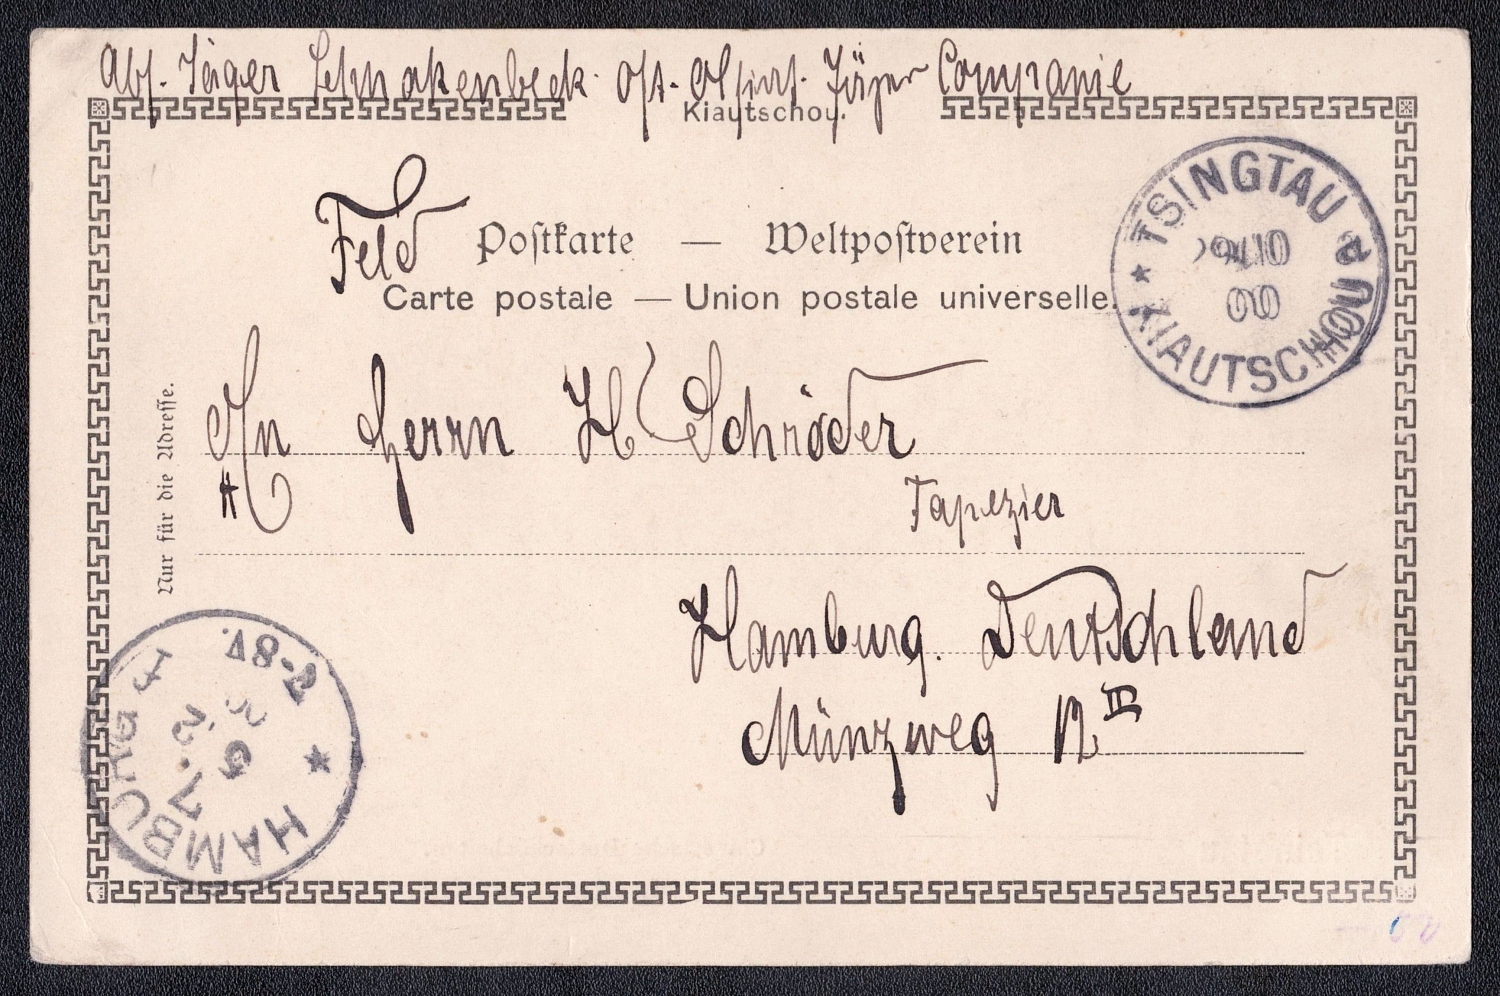 Abs. Jäger Schnakenbeck. Ost-Asiat. Jäger Companie
Kiautschou.
Feld
Postkarte — Weltpostverein
Carte postale — Union postale universelle.
TSINGTAU
a
00
KIAUTSCHOU
Nur für die Adresse.
An Herrn H. Schröder
Tapezier
Hamburg. Deutschland
Münzweg 12 III
HAMBURG 1